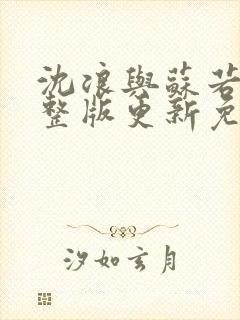 沈浪與蘇若
整版更新免
汐如玄月